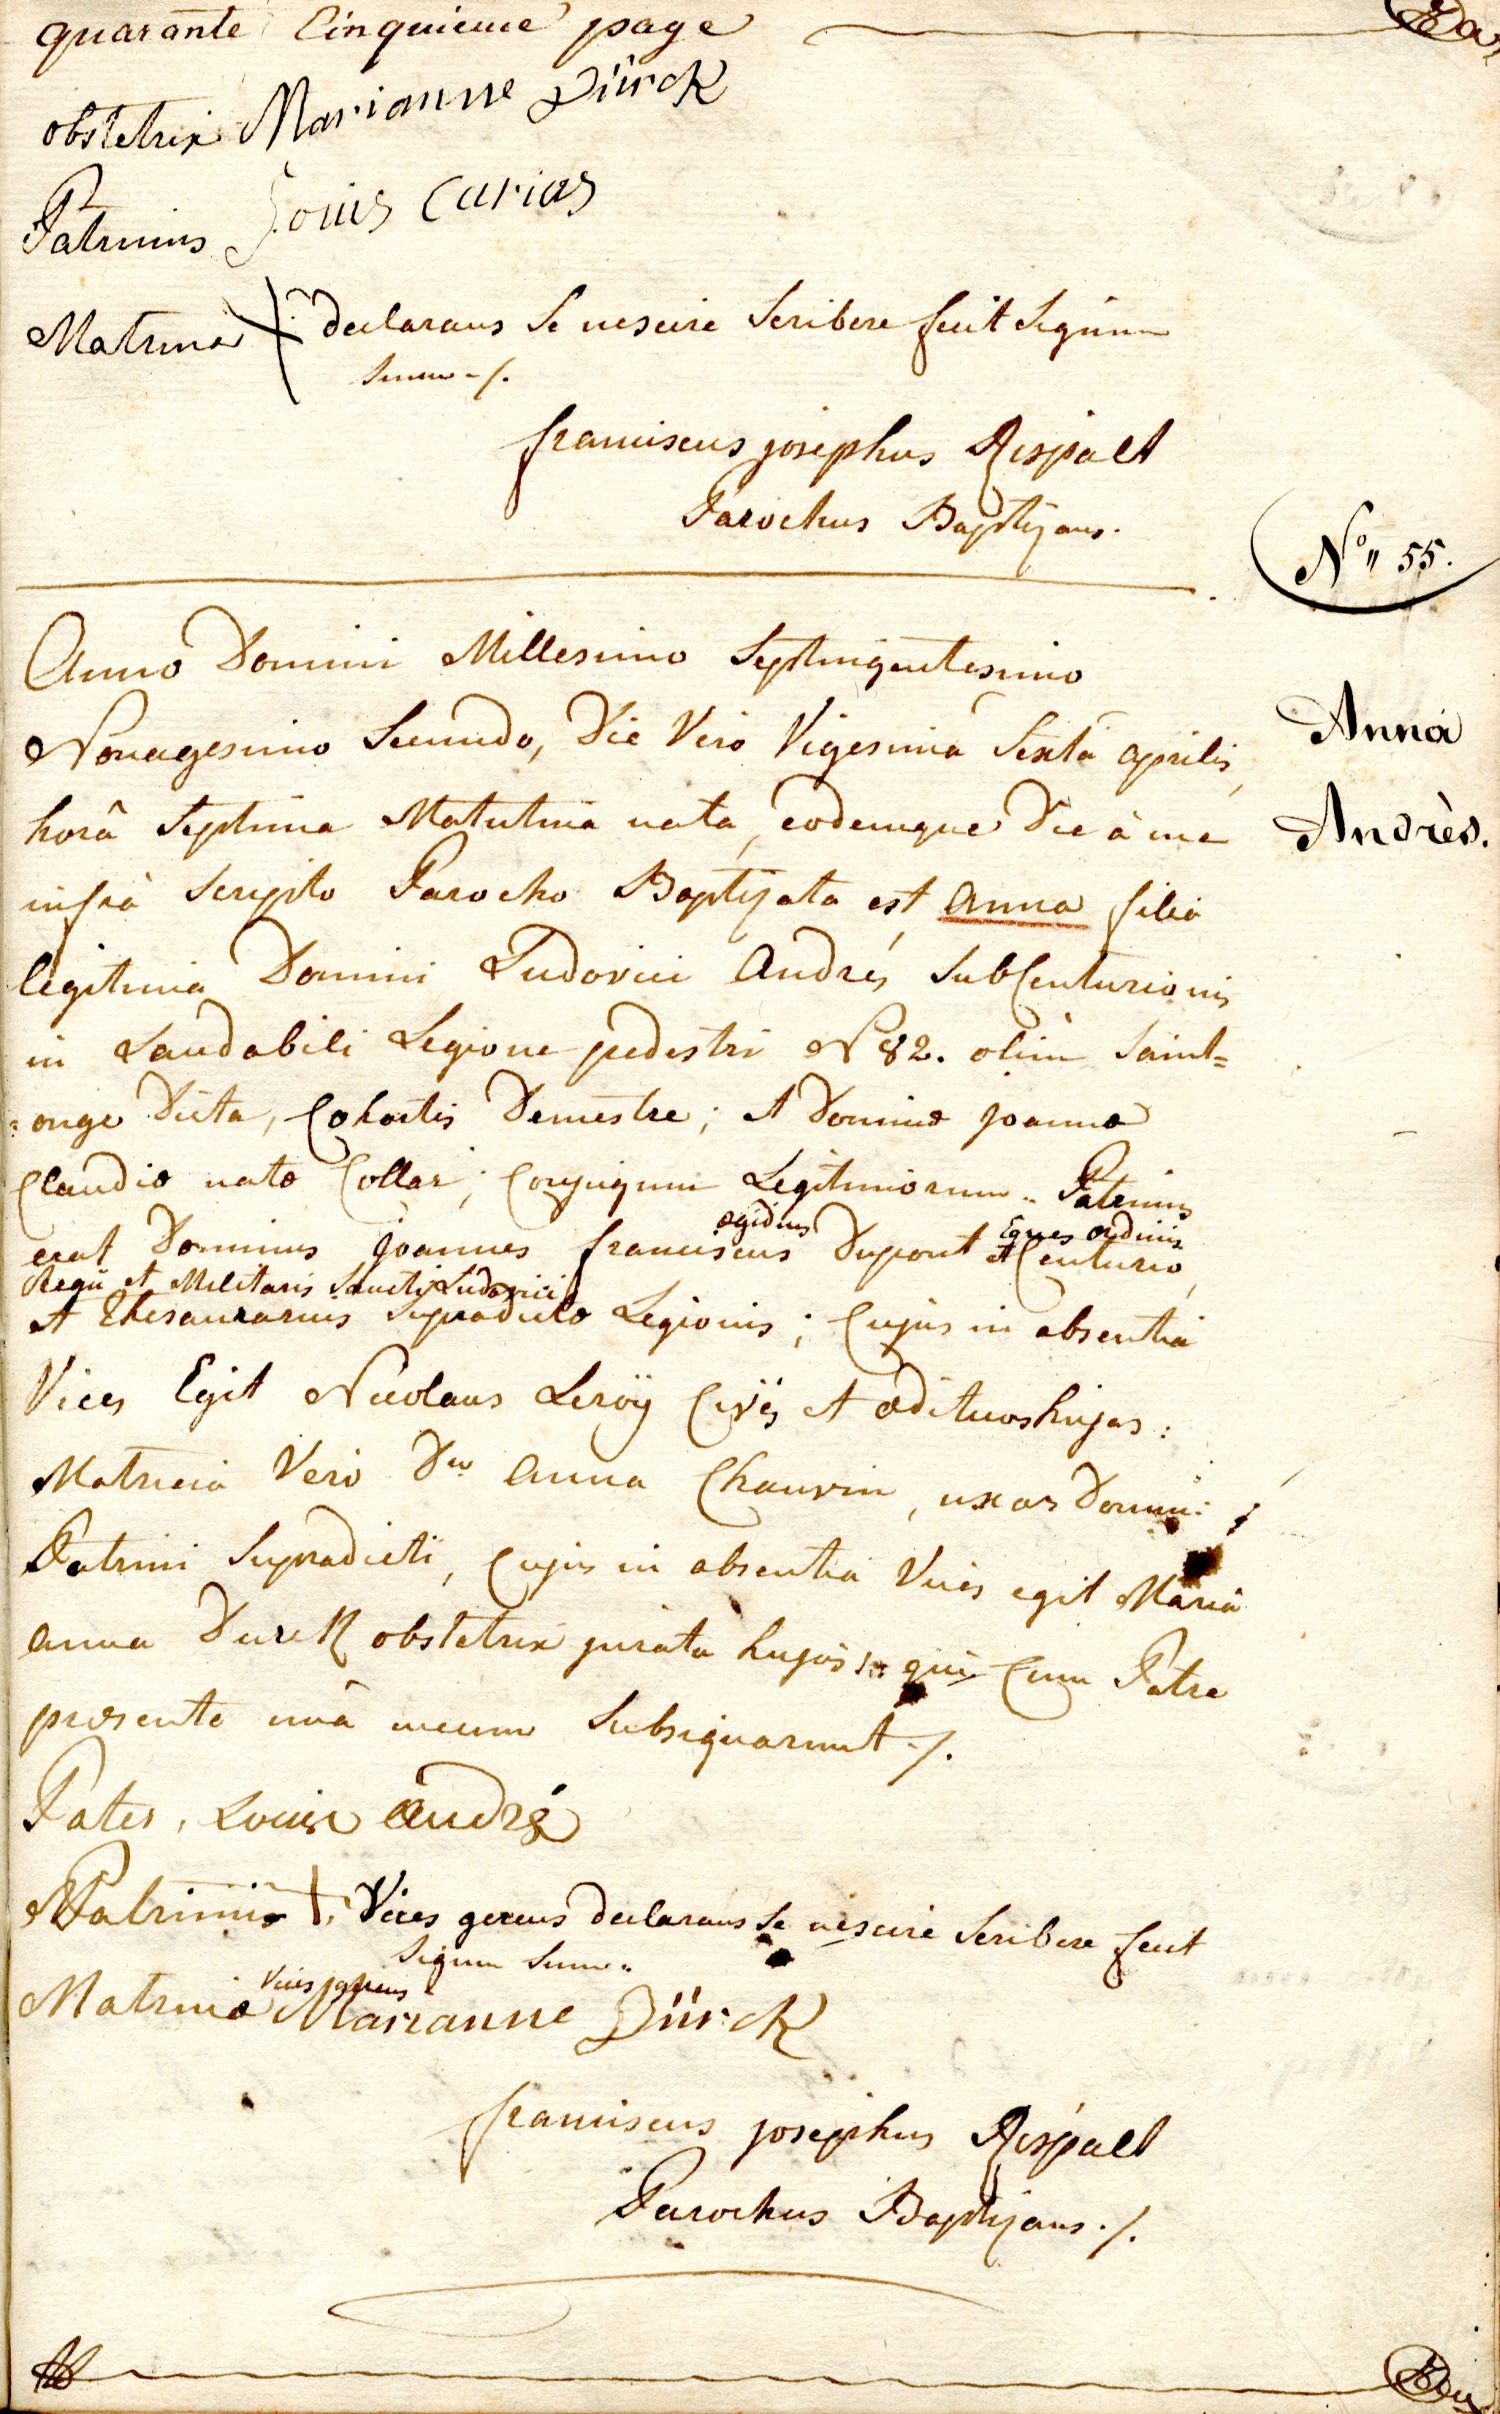 quarante Cinquieme page
obstetrix Marianne Dürck
Patrinus Louis Carias
Matrina + declarans se nescire scribere fecit signum
suum -/.
franciscus josephus Rispalt
Parochus Baptizans.
No„ 55.
Anno Domini Millesimo Septingentesimo
Nonagesimo Secundo, Die Vero Vigesima Sexta aprilis,
horâ Septima Matutina nata, eodemque Die à me
infrà Scripto Parocho Baptizata est Anna filia
legitima Domini Ludovici Andrés SubCenturionis
in Laudabili Legione pedestri N 82. olim Saint=
=onge Dicta, Cohortis Demestre; et Dominæ joannæ
Claudiæ natæ Collar; Conjugum Legitimorum.. Patrinus
erat Dominus joannes franciscus ægidius Dupont Eques ordinis
Regii et Militaris Sancti Ludovici et Centurio,
et Thesaurarius supradictæ Legionis; Cujus in absentia
Vices Egit Nicolaus Leröy Civis et ædituus hujas:
Matrina Vero Dna Anna Chauvin, uxor Domini
Patrini Supradicti, Cujus in absentia Vices egit Maria
anna Durck obstetrix jurata hujas:. qui Cum Patre
præsente unâ mecum Subsignarunt ./.
Anna
Andrès.
Pater, Louis André
Patrini + Vices gerens declarans se nescire scribere fecit
Signum Suum..
Matrinæ Vices gerens Marianne Dürck
franciscus josephus Rispalt
Parochus Baptizans ./.